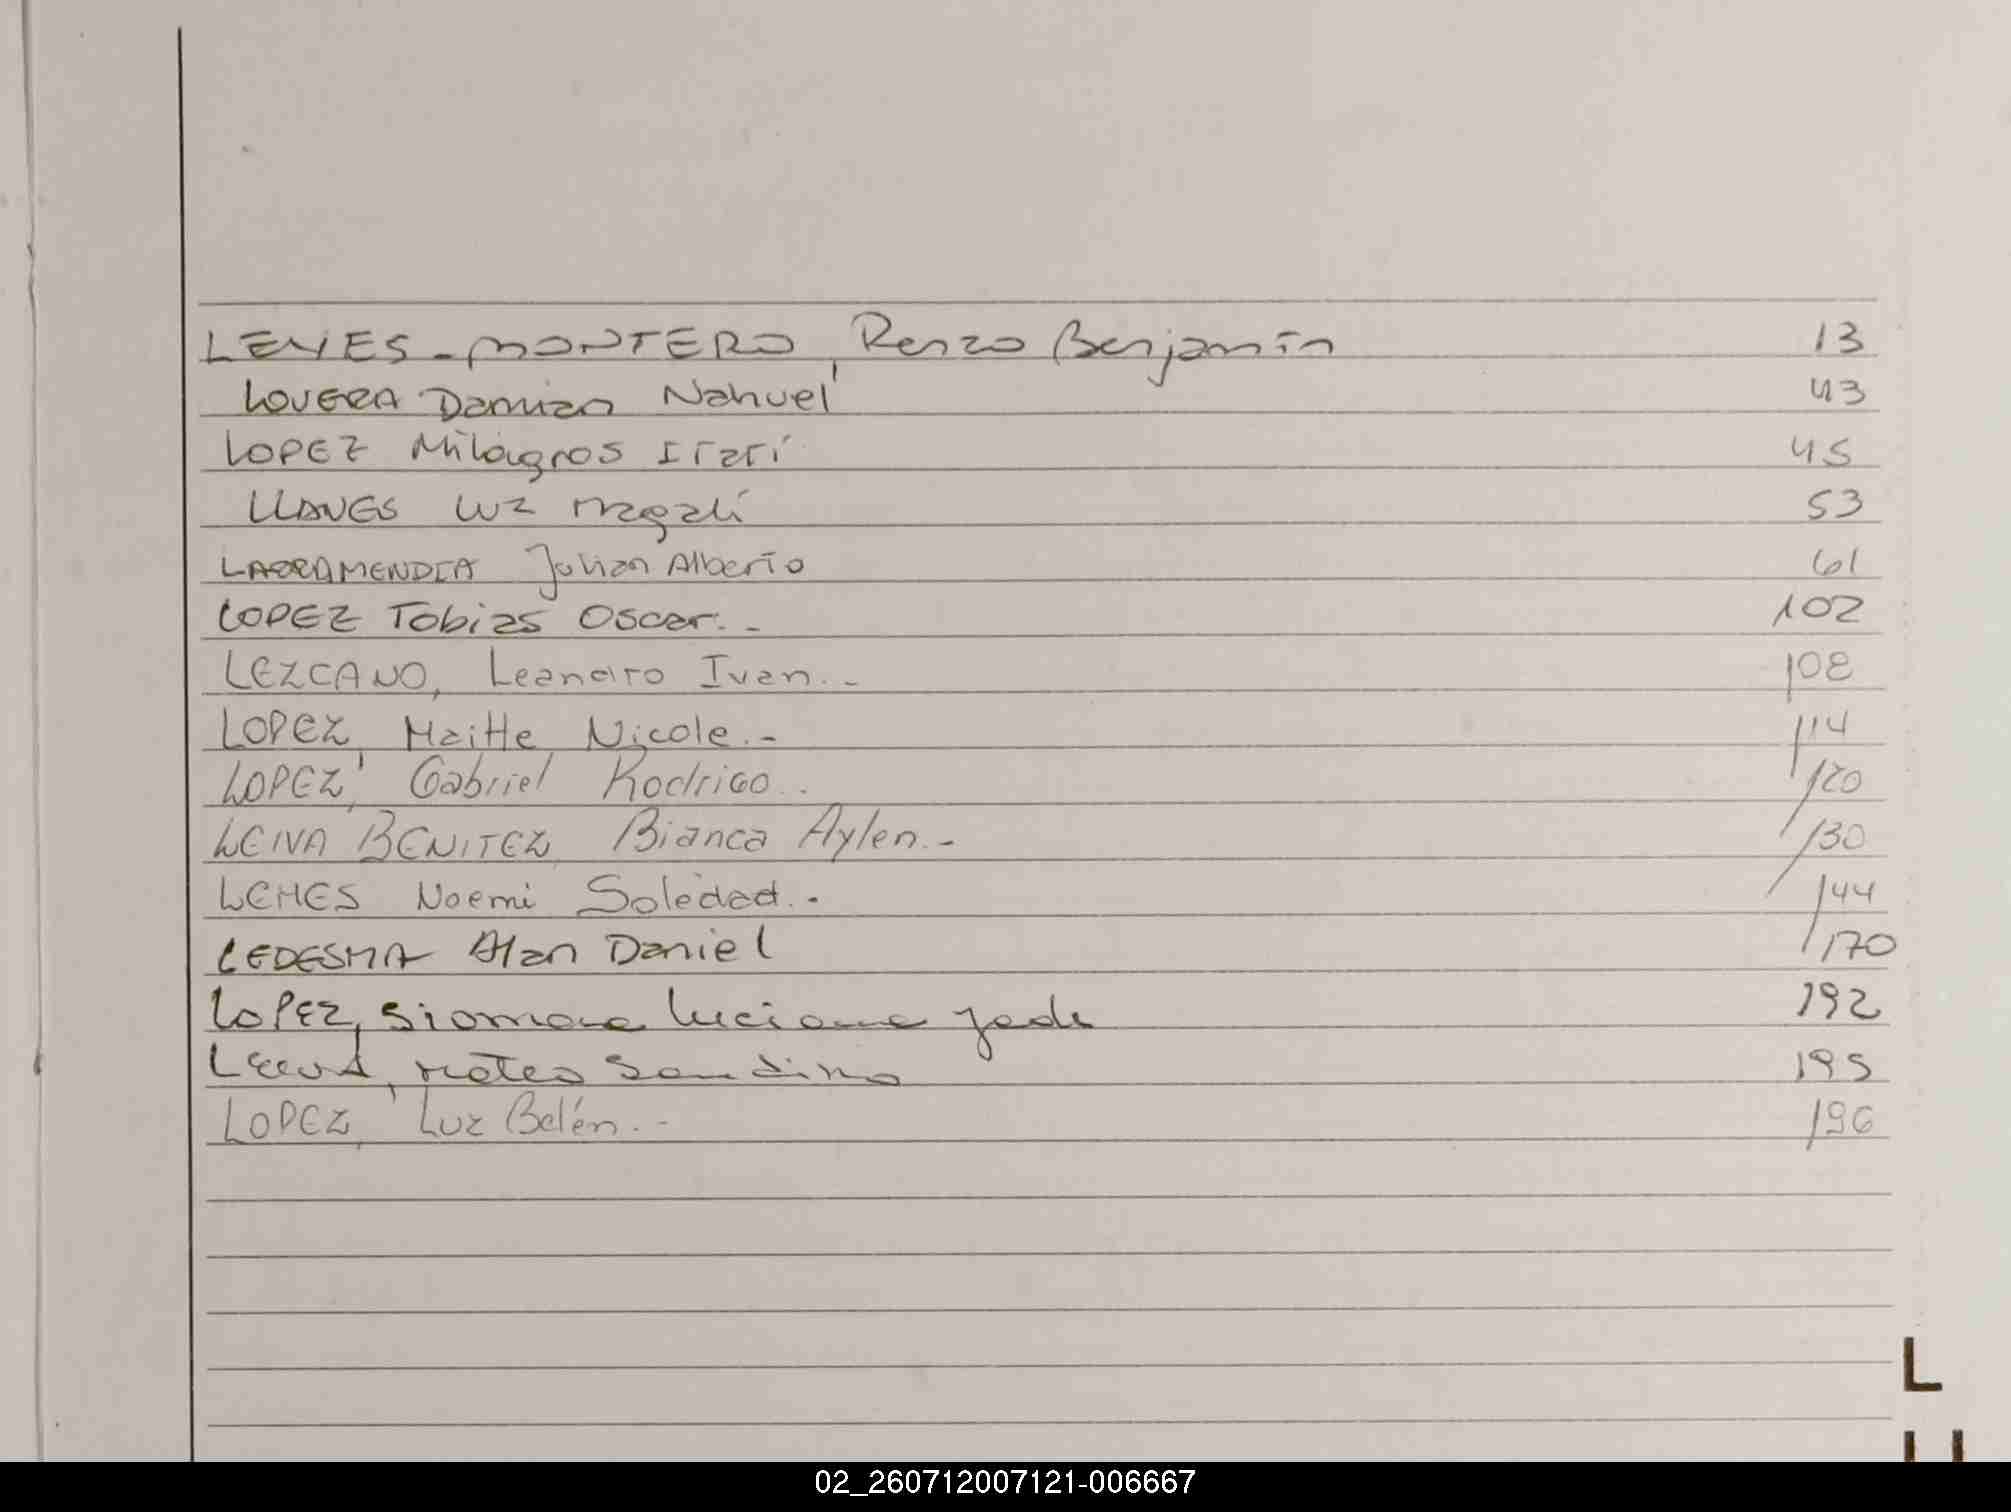 LEYES-MONTERO, Renzo Benjamín 13
LOVERA Damian Nahuel 43
LOPEZ Milagros Itatí 45
LLANES Luz Magalí 53
LARRAMENDIA Julian Alberto 61
LOPEZ Tobias Oscar.- 102
LEZCANO, Leandro Ivan.- 108
LOPEZ, Maitte Nicole.- 114
LOPEZ, Gabriel Rodrigo.. 120
LEIVA BENITEZ, Bianca Aylen.- 130
LEMES Noemi Soledad.- 144
LEDESMA Alan Daniel 170
LOPEZ, Siomara Luciana Jade 192
mateo Sandino 195
LOPEZ, Luz Belén.- 196
L
LL
02_260712007121-006667